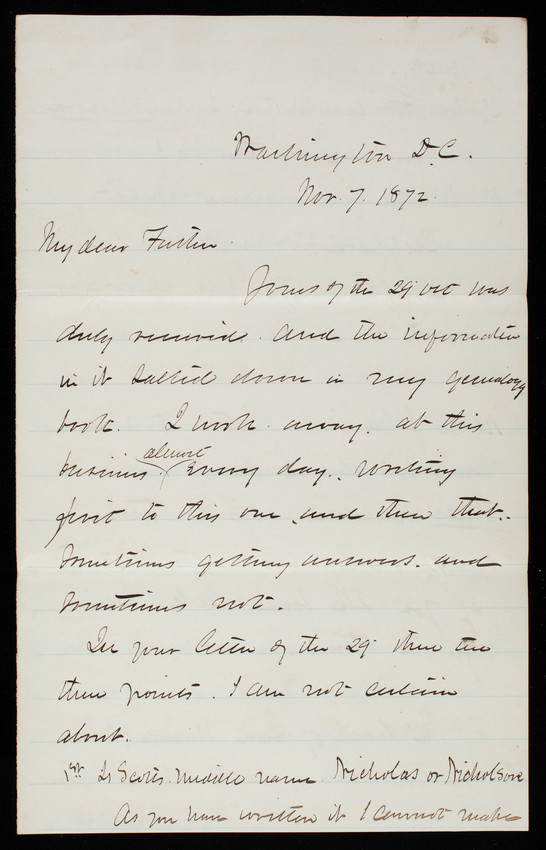 Washington D.C.
Nov. 7. 1872.
My dear
Yours of the 29 Oct was
duly received. and the information
in it salted down in my genealogy
book. I work away. at this
business. almost every day. writing
first to this one, and then that.
sometimes getting answers. and
sometimes not.
In your letter of the 29
three points. I am not certain
about.
1st Is Scotts. middle name Nicholas or Nicholson
As you have written it I cannot make